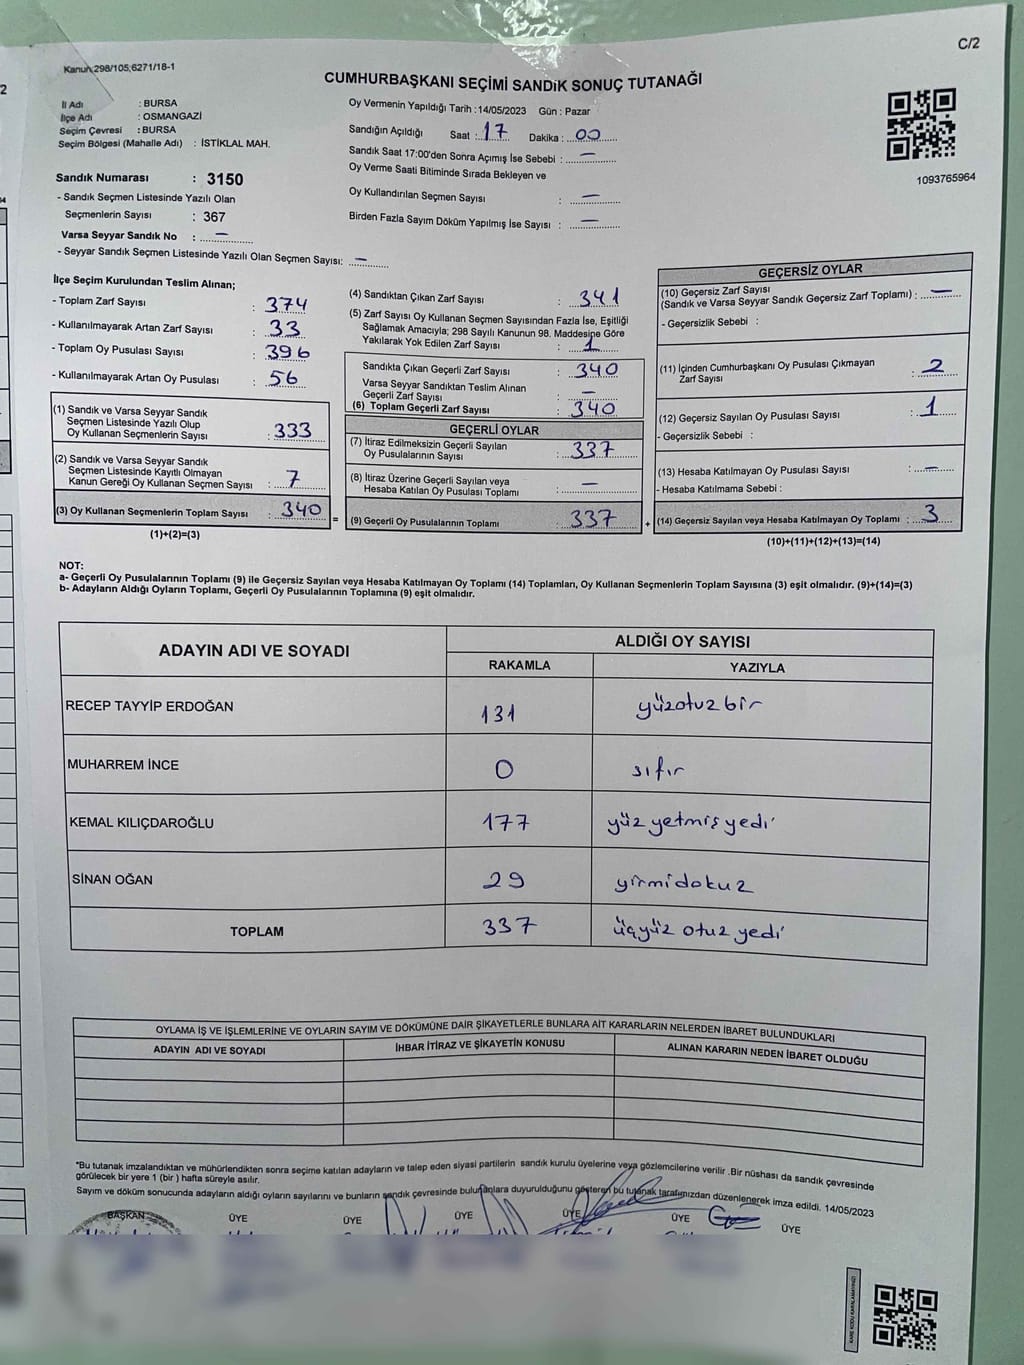 C/2
Kanun 298/105,6271/18-1
CUMHURBAŞKANI SEÇİMİ SANDıK SONUÇ TUTANAĞI
İl Adı : BURSA
İlçe Adı : OSMANGAZİ
Seçim Çevresi : BURSA
Seçim Bölgesi (Mahalle Adı) : İSTİKLAL MAH.
Sandık Numarası : 3150
- Sandık Seçmen Listesinde Yazılı Olan
Seçmenlerin Sayısı : 367
Varsa Seyyar Sandık No : –
- Seyyar Sandık Seçmen Listesinde Yazılı Olan Seçmen Sayısı: –
Oy Vermenin Yapıldığı Tarih : 14/05/2023 Gün : Pazar
Sandığın Açıldığı Saat : 17 Dakika : 00
Sandık Saat 17:00'den Sonra Açımış İse Sebebi : –
Oy Verme Saati Bitiminde Sırada Bekleyen ve
Oy Kullandırılan Seçmen Sayısı : –
Birden Fazla Sayım Döküm Yapılmış İse Sayısı : –
1093765964
İlçe Seçim Kurulundan Teslim Alınan;
- Toplam Zarf Sayısı : 374
- Kullanılmayarak Artan Zarf Sayısı : 33
- Toplam Oy Pusulası Sayısı : 396
- Kullanılmayarak Artan Oy Pusulası : 56
(1) Sandık ve Varsa Seyyar Sandık
Seçmen Listesinde Yazılı Olup
Oy Kullanan Seçmenlerin Sayısı : 333
(2) Sandık ve Varsa Seyyar Sandık
Seçmen Listesinde Kayıtlı Olmayan
Kanun Gereği Oy Kullanan Seçmen Sayısı : 7
(3) Oy Kullanan Seçmenlerin Toplam Sayısı : 340
(1)+(2)=(3)
(4) Sandıktan Çıkan Zarf Sayısı : 341
(5) Zarf Sayısı Oy Kullanan Seçmen Sayısından Fazla İse, Eşitliği
Sağlamak Amacıyla; 298 Sayılı Kanunun 98. Maddesine Göre
Yakılarak Yok Edilen Zarf Sayısı : 1
Sandıkta Çıkan Geçerli Zarf Sayısı : 340
Varsa Seyyar Sandıktan Teslim Alınan
Geçerli Zarf Sayısı : –
(6) Toplam Geçerli Zarf Sayısı : 340
GEÇERLİ OYLAR
(7) İtiraz Edilmeksizin Geçerli Sayılan
Oy Pusulalarının Sayısı : 337
(8) İtiraz Üzerine Geçerli Sayılan veya
Hesaba Katılan Oy Pusulası Toplamı : –
= (9) Geçerli Oy Pusulalarının Toplamı : 337 +
GEÇERSİZ OYLAR
(10) Geçersiz Zarf Sayısı
(Sandık ve Varsa Seyyar Sandık Geçersiz Zarf Toplamı) : –
- Geçersizlik Sebebi :
(11) İçinden Cumhurbaşkanı Oy Pusulası Çıkmayan
Zarf Sayısı : 2
(12) Geçersiz Sayılan Oy Pusulası Sayısı : 1
- Geçersizlik Sebebi :
(13) Hesaba Katılmayan Oy Pusulası Sayısı : –
- Hesaba Katılmama Sebebi :
(14) Geçersiz Sayılan veya Hesaba Katılmayan Oy Toplamı : 3
(10)+(11)+(12)+(13)=(14)
NOT:
a- Geçerli Oy Pusulalarının Toplamı (9) ile Geçersiz Sayılan veya Hesaba Katılmayan Oy Toplamı (14) Toplamları, Oy Kullanan Seçmenlerin Toplam Sayısına (3) eşit olmalıdır. (9)+(14)=(3)
b- Adayların Aldığı Oyların Toplamı, Geçerli Oy Pusulalarının Toplamına (9) eşit olmalıdır.
ADAYIN ADI VE SOYADI ALDIĞI OY SAYISI
RAKAMLA YAZIYLA
RECEP TAYYİP ERDOĞAN 131 yüzotuzbir
MUHARREM İNCE 0 sıfır
KEMAL KILIÇDAROĞLU 177 yüz yetmiş yedi
SİNAN OĞAN 29 yirmidokuz
TOPLAM 337 üçyüz otuz yedi
OYLAMA İŞ VE İŞLEMLERİNE VE OYLARIN SAYIM VE DÖKÜMÜNE DAİR ŞİKAYETLERLE BUNLARA AİT KARARLARIN NELERDEN İBARET BULUNDUKLARI
ADAYIN ADI VE SOYADI İHBAR İTİRAZ VE ŞİKAYETİN KONUSU ALINAN KARARIN NEDEN İBARET OLDUĞU
*Bu tutanak imzalandıktan ve mühürlendikten sonra seçime katılan adayların ve talep eden siyasi partilerin sandık kurulu üyelerine veya gözlemcilerine verilir .Bir nüshası da sandık çevresinde
görülecek bir yere 1 (bir ) hafta süreyle asılır.
Sayım ve döküm sonucunda adayların aldığı oyların sayılarını ve bunların sandık çevresinde bulunanlara duyurulduğunu gösteren bu tutanak tarafımızdan düzenlenerek imza edildi. 14/05/2023
BAŞKAN ÜYE ÜYE ÜYE ÜYE ÜYE ÜYE
KARE KODU KARALAMAYINIZ!